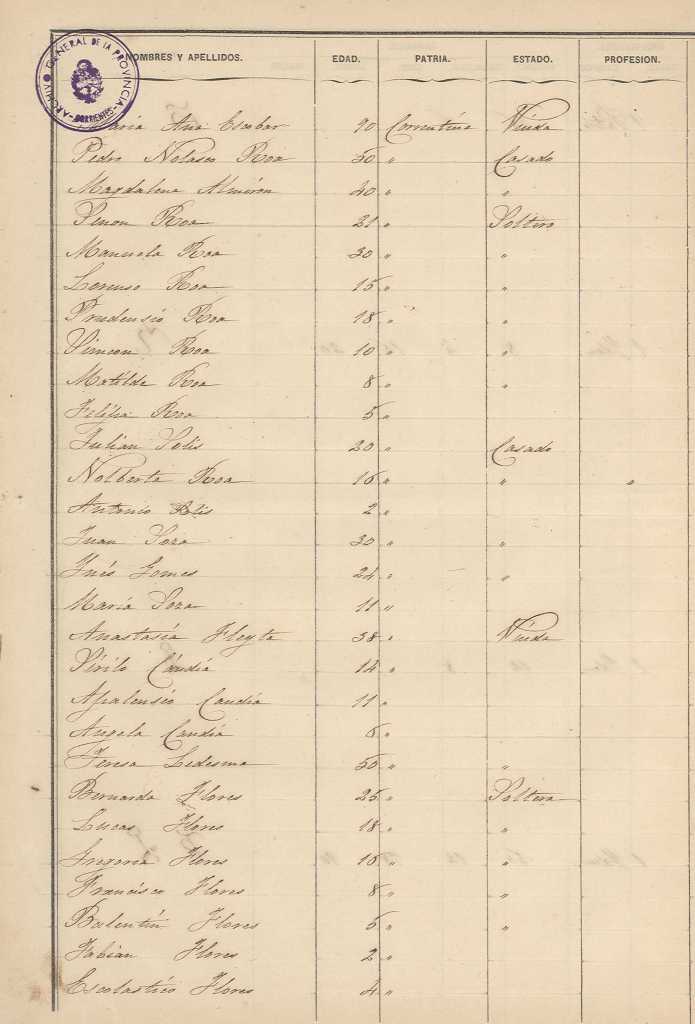 ARCHIVO GENERAL DE LA PROVINCIA - CORRIENTES -
NOMBRES Y APELLIDOS. EDAD. PATRIA. ESTADO. PROFESION.
María Ana Escobar 90 Correntina Viuda
Pedro Nolasco Roa 50 " Casado
Magdalena Almirón 40 " "
Simon Roa 21 " Soltero
Manuela Roa 30 " "
Lorenso Roa 15 " "
Prudensio Roa 18 " "
Roa 10 " "
Matilde Roa 8 " "
Felipa Roa 5 "
Julián Solis 20 " Casado
Nolberta Roa 16 " " "
Antonio Solis 2 "
Juan Soza 30 " "
Inés Gomes 24 " "
María Soza 11 "
Anastasia Fleyta 38 " Viuda
Sirilo Candia 14 "
Apolensio Candia 11 "
Angela Candia 8 "
Teresa Ledesma 50 " "
Bernarda Flores 25 " Soltera
Lucas Flores 18 " "
Gregoria Flores 10 " "
Francisco Flores 8 " "
Balentin Flores 5 " "
Fabian Flores 2 "
Escolastico Flores 4 "